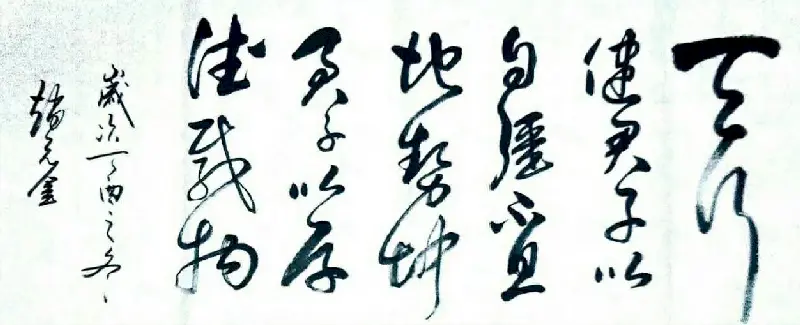 天行
健君子以
自彊不息
地勢坤
君子以厚
德載物
歲次丁酉之冬